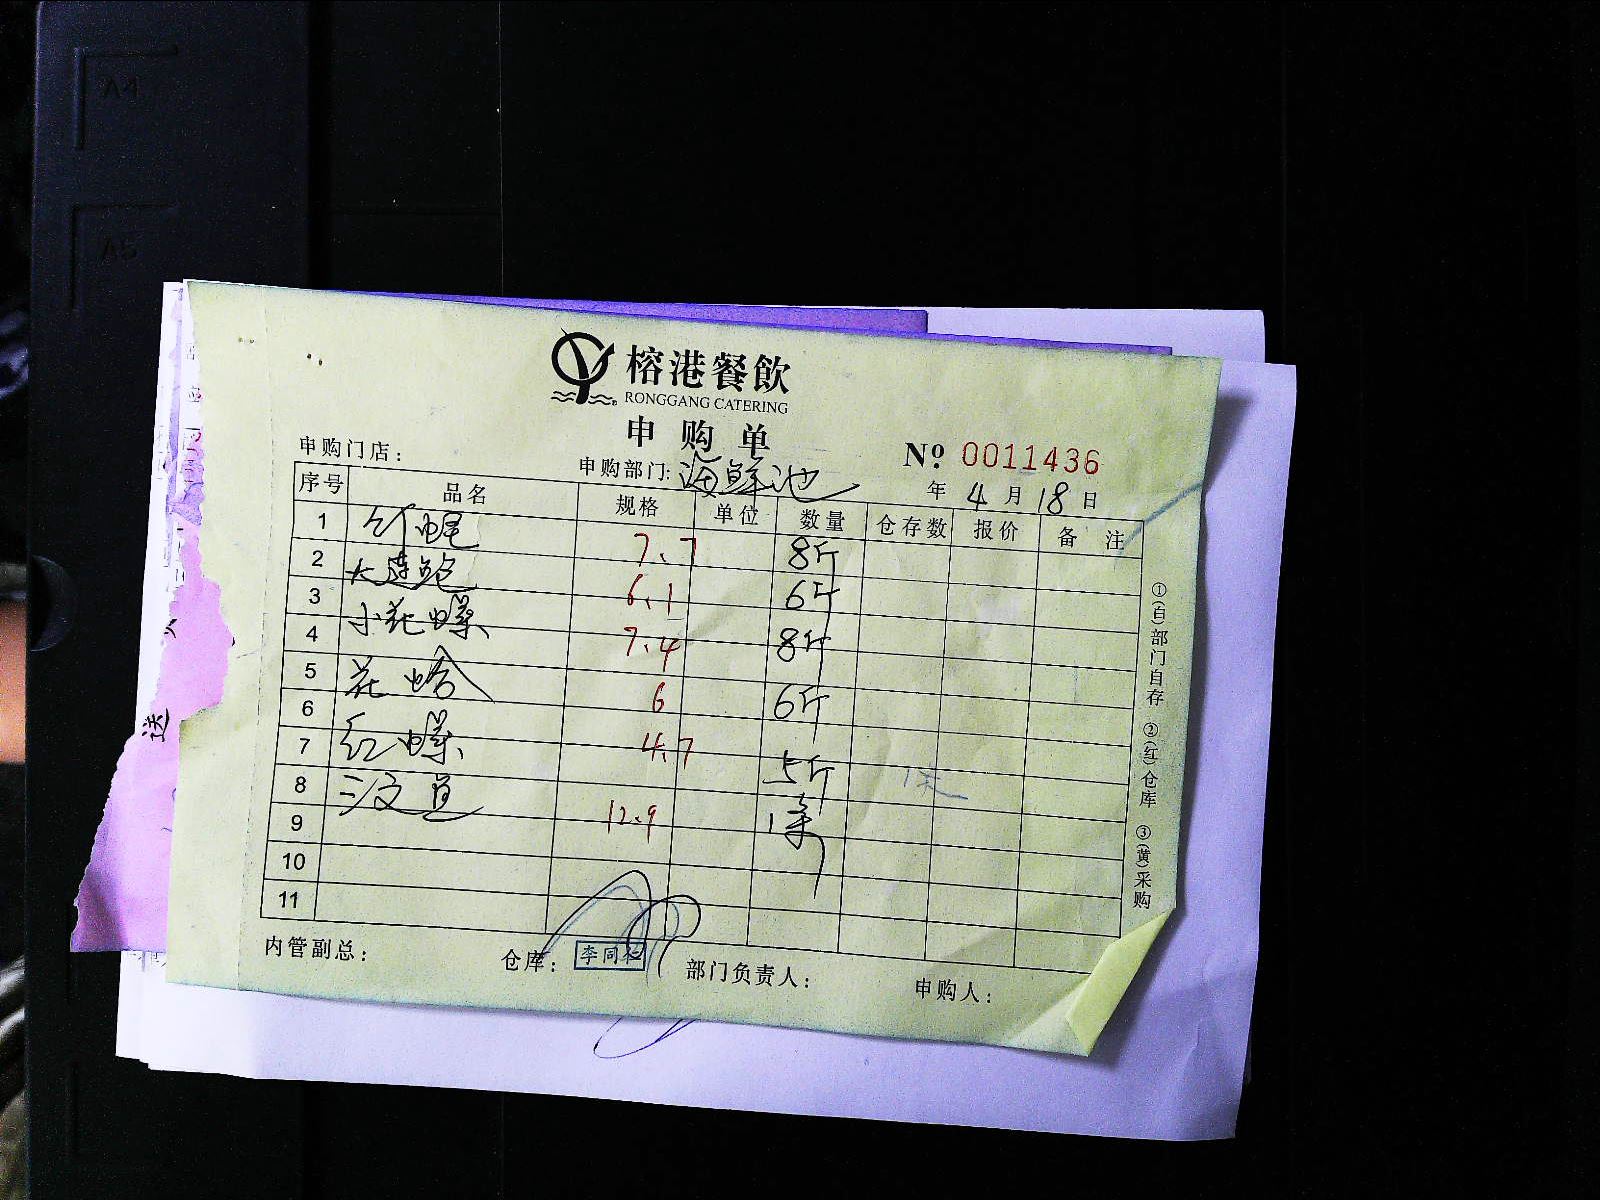 A4
A5
榕港餐飲
RONGGANG CATERING
申购单
申购门店：
申购部门：海鲜池
No. 0011436
年 4 月 18 日
序号 品名 规格 单位 数量 仓存数 报价 备注
1 竹蛏 7.7 8斤
2 大连鲍 6.1 6斤
3 小花螺 7.4 8斤
4
5 花蛤 6 6斤
6 红螺 4.7 5斤
7
8 三文鱼 12.9 1条
9
10
11
1条
内管副总：
仓库：李同仁
部门负责人：
申购人：
①(白)部门自存 ②(红)仓库 ③(黄)采购
送